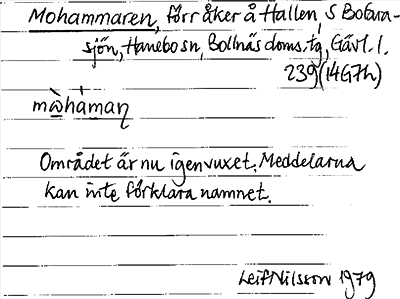 Mohammaren, förr åker å Hallen, S Bofara-
sjön, Hanebo sn, Bollnäs doms.tg, Gävl. l.
239 (14G7h)
Området är nu igenvuxet. Meddelarna
kan inte förklara namnet.
Leif Nilsson 1979